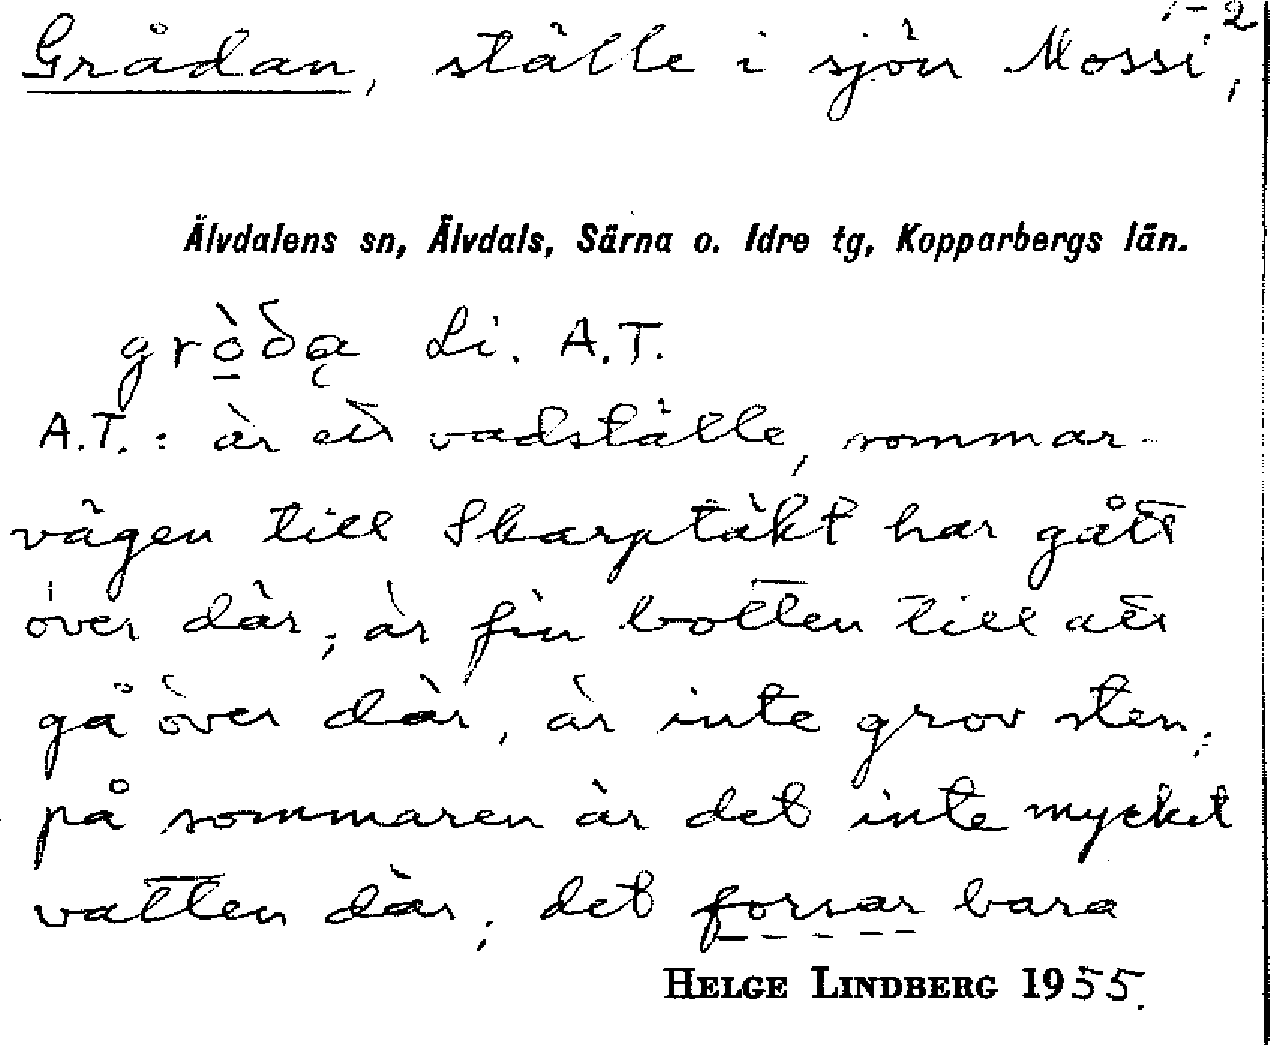 1-2
Grådan, ställe i sjön Mossi,
Älvdalens sn, Älvdals, Särna o. Idre tg, Kopparbergs län.
grò̱ðą Li. A.T.
A.T.: är ett vadställe, sommar-
vägen till Skarptäkt har gått
över där; är fin botten till att
gå över där, är inte grov sten;
på sommaren är det inte mycket
vatten där; det forsar bara
HELGE LINDBERG 1955.